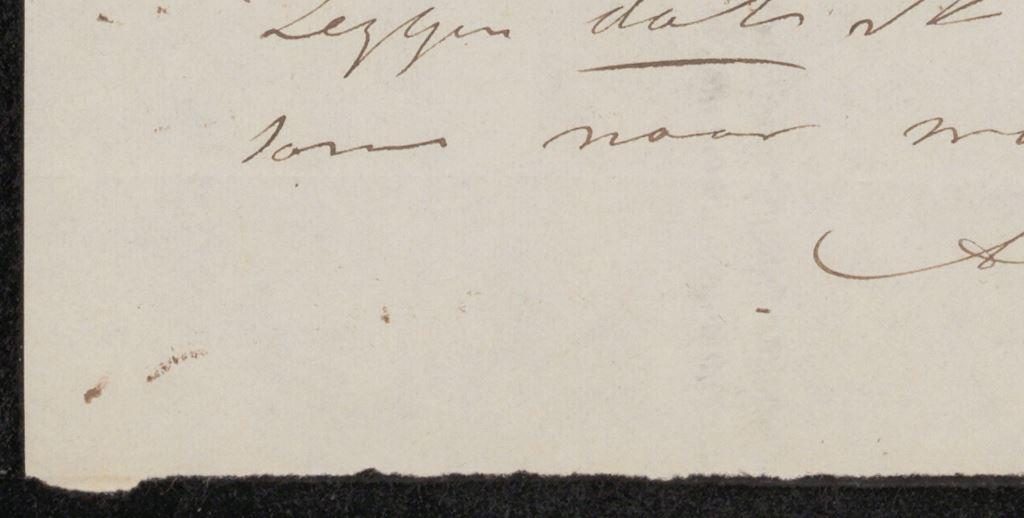 zeggen dat ik
soms naar